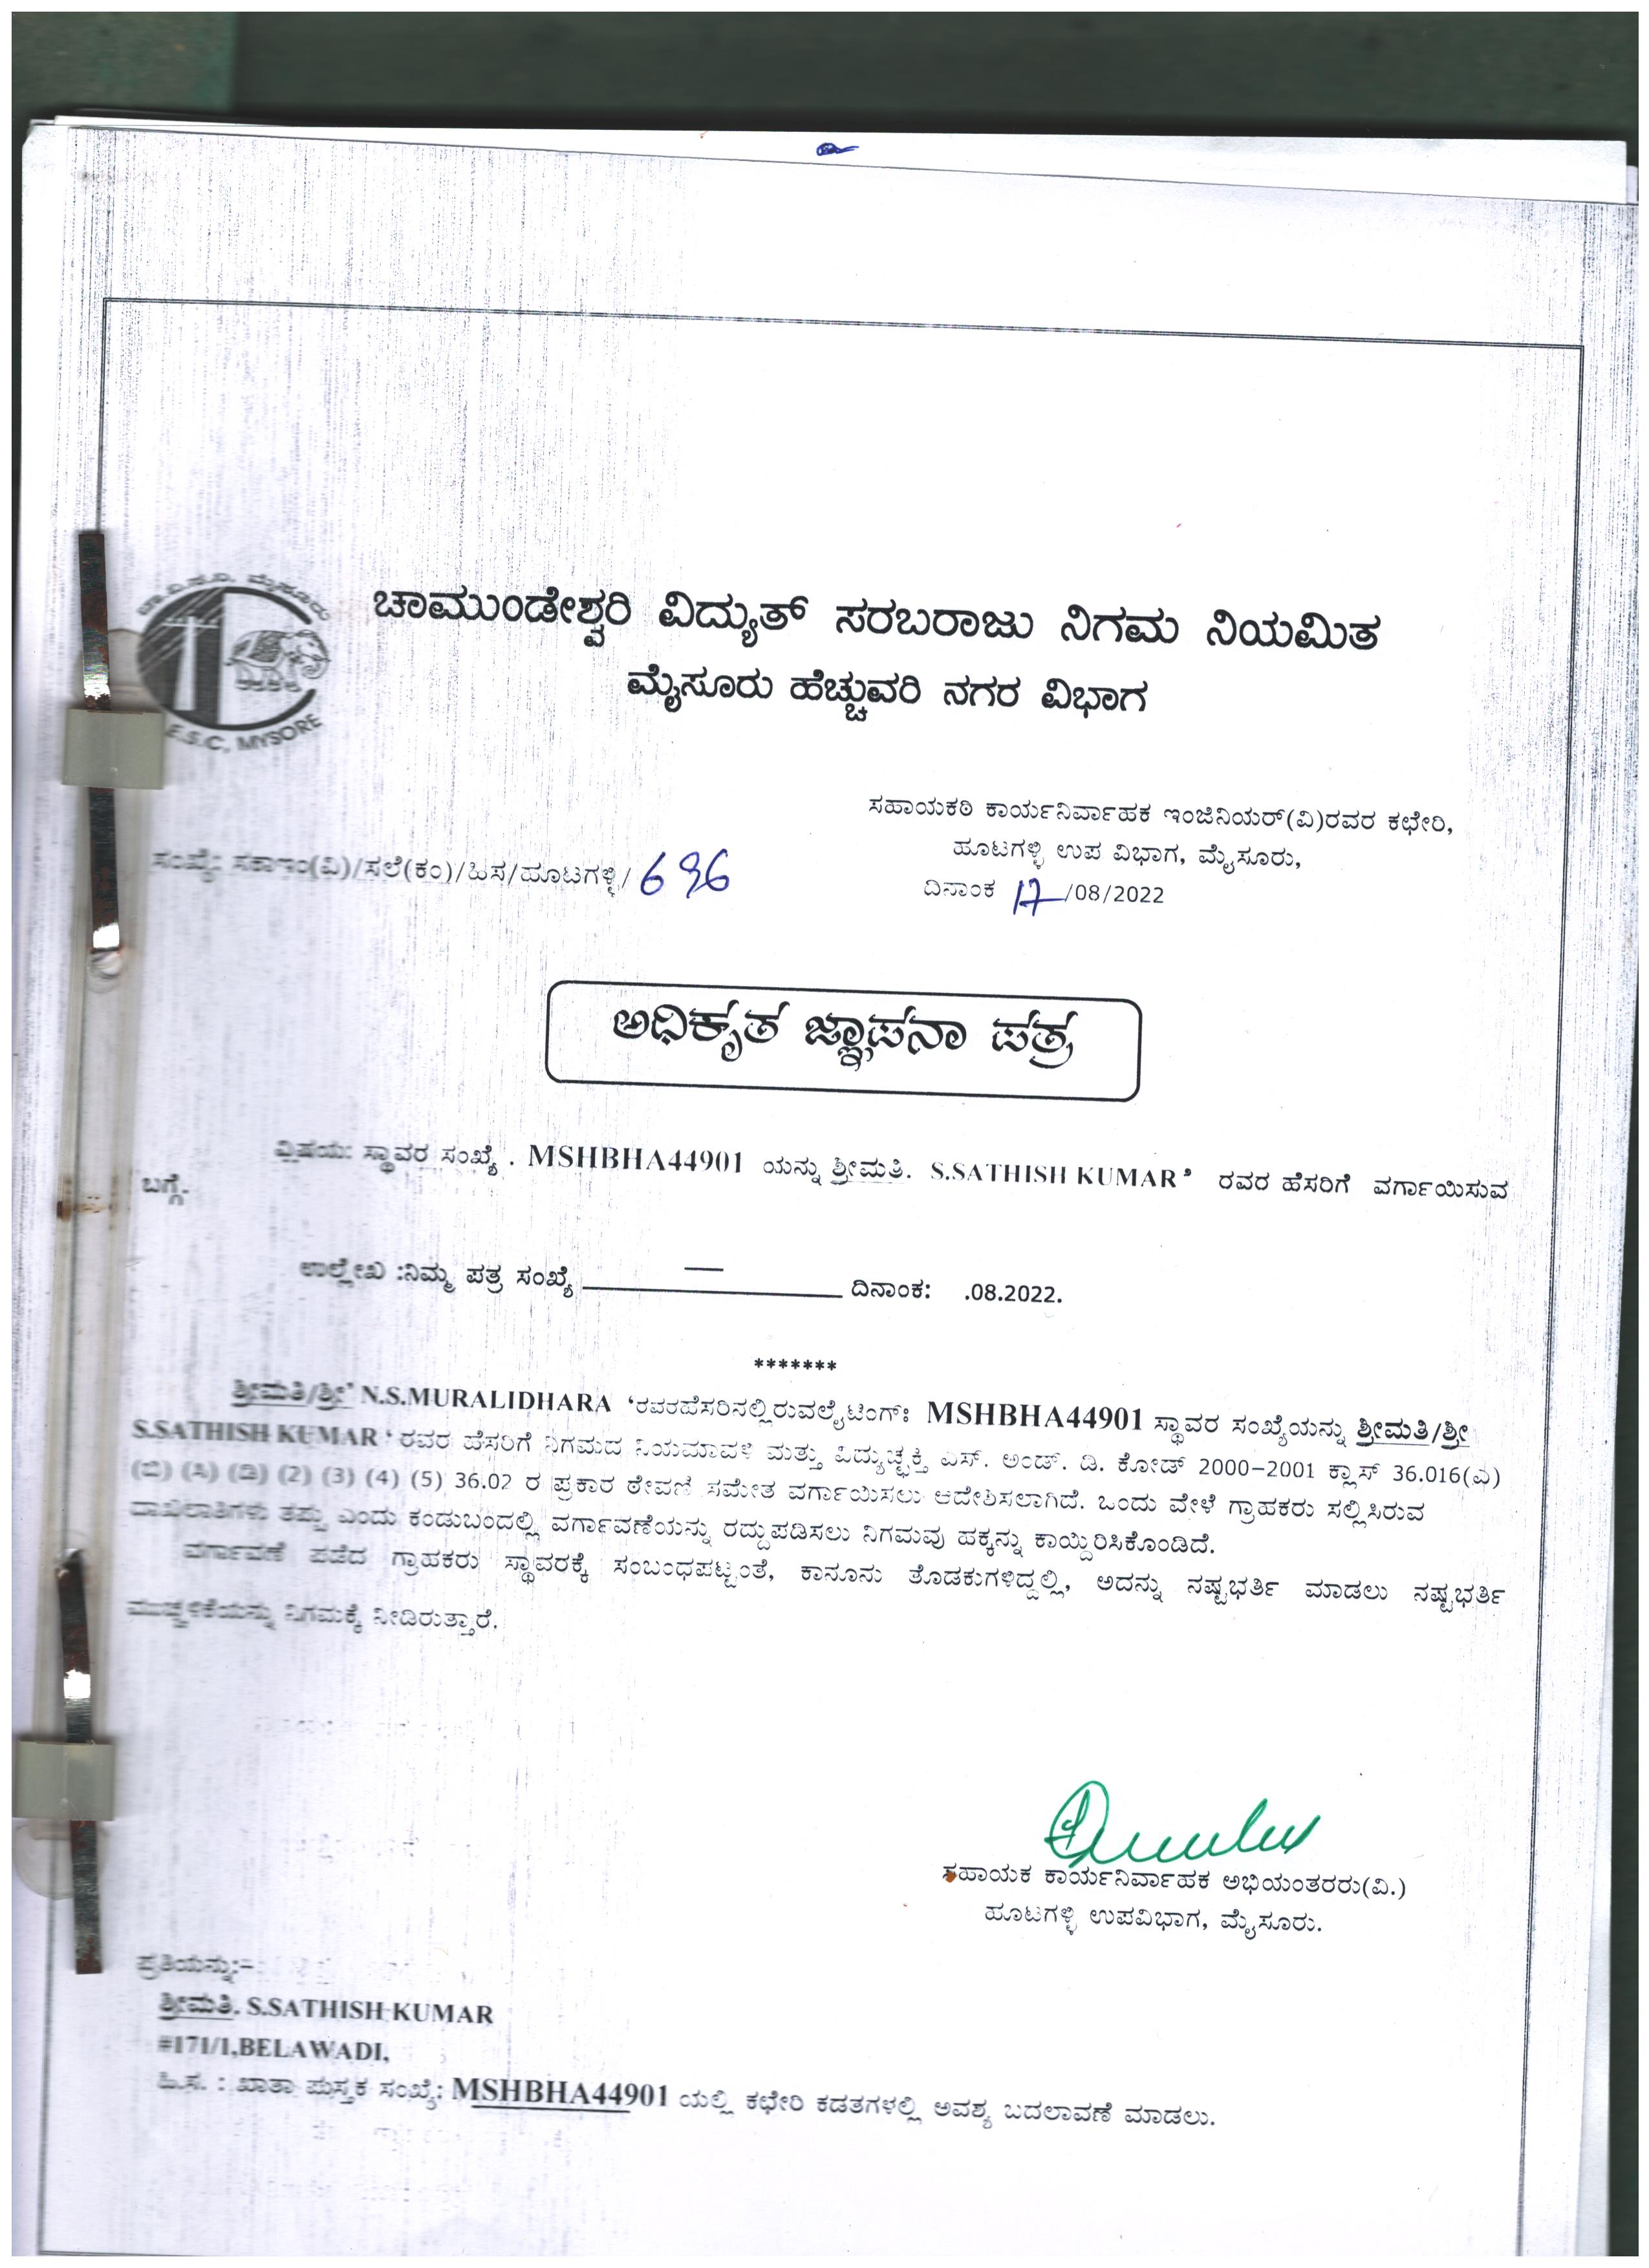 ಚಾ.ವಿ.ಸ.ನಿ. ಮೈಸೂರು
E.S.C, MYSORE
ಚಾಮುಂಡೇಶ್ವರಿ ವಿದ್ಯುತ್ ಸರಬರಾಜು ನಿಗಮ ನಿಯಮಿತ
ಮೈಸೂರು ಹೆಚ್ಚುವರಿ ನಗರ ವಿಭಾಗ
ಸಹಾಯಕಠಿ ಕಾರ್ಯನಿರ್ವಾಹಕ ಇಂಜಿನಿಯರ್(ವಿ)ರವರ ಕಛೇರಿ,
ಹೂಟಗಳ್ಳಿ ಉಪ ವಿಭಾಗ, ಮೈಸೂರು,
ಸಂಖ್ಯೆ: ಸಕಾಇಂ(ವಿ)/ಸಲೆ(ಕಂ)/ಹಿಸ/ಹೂಟಗಳ್ಳಿ/ 696
ದಿನಾಂಕ 17/08/2022
ಅಧಿಕೃತ ಜ್ಞಾಪನಾ ಪತ್ರ
ವಿಷಯ: ಸ್ಥಾವರ ಸಂಖ್ಯೆ . MSHBHA44901 ಯನ್ನು ಶ್ರೀಮತಿ. S.SATHISH KUMAR’ ರವರ ಹೆಸರಿಗೆ ವರ್ಗಾಯಿಸುವ
ಬಗ್ಗೆ.
ಉಲ್ಲೇಖ :ನಿಮ್ಮ ಪತ್ರ ಸಂಖ್ಯೆ — ದಿನಾಂಕ: .08.2022.
*******
ಶ್ರೀಮತಿ/ಶ್ರೀ’ N.S.MURALIDHARA ‘ರವರಹೆಸರಿನಲ್ಲಿರುವಲೈಟಿಂಗ್: MSHBHA44901 ಸ್ಥಾವರ ಸಂಖ್ಯೆಯನ್ನು ಶ್ರೀಮತಿ/ಶ್ರೀ
S.SATHISH KUMAR ‘ ರವರ ಹೆಸರಿಗೆ ನಿಗಮದ ನಿಯಮಾವಳಿ ಮತ್ತು ವಿದ್ಯುಚ್ಛಕ್ತಿ ಎಸ್. ಅಂಡ್. ಡಿ. ಕೋಡ್ 2000–2001 ಕ್ಲಾಸ್ 36.016(ಎ)
(ಬಿ) (ಸಿ) (ಡಿ) (2) (3) (4) (5) 36.02 ರ ಪ್ರಕಾರ ಠೇವಣಿ ಸಮೇತ ವರ್ಗಾಯಿಸಲು ಆದೇಶಿಸಲಾಗಿದೆ. ಒಂದು ವೇಳೆ ಗ್ರಾಹಕರು ಸಲ್ಲಿಸಿರುವ
ದಾಖಲಾತಿಗಳು ತಪ್ಪು ಎಂದು ಕಂಡುಬಂದಲ್ಲಿ ವರ್ಗಾವಣೆಯನ್ನು ರದ್ದುಪಡಿಸಲು ನಿಗಮವು ಹಕ್ಕನ್ನು ಕಾಯ್ದಿರಿಸಿಕೊಂಡಿದೆ.
ವರ್ಗಾವಣೆ ಪಡೆದ ಗ್ರಾಹಕರು ಸ್ಥಾವರಕ್ಕೆ ಸಂಬಂಧಪಟ್ಟಂತೆ, ಕಾನೂನು ತೊಡಕುಗಳಿದ್ದಲ್ಲಿ, ಅದನ್ನು ನಷ್ಟಭರ್ತಿ ಮಾಡಲು ನಷ್ಟಭರ್ತಿ
ಮುಚ್ಚಳಿಕೆಯನ್ನು ನಿಗಮಕ್ಕೆ ನೀಡಿರುತ್ತಾರೆ.
ಸಹಾಯಕ ಕಾರ್ಯನಿರ್ವಾಹಕ ಅಭಿಯಂತರರು(ವಿ.)
ಹೂಟಗಳ್ಳಿ ಉಪವಿಭಾಗ, ಮೈಸೂರು.
ಪ್ರತಿಯನ್ನು:–
ಶ್ರೀಮತಿ. S.SATHISH KUMAR
#171/1,BELAWADI,
ಹಿ.ಸ. : ಖಾತಾ ಪುಸ್ತಕ ಸಂಖ್ಯೆ: MSHBHA44901 ಯಲ್ಲಿ ಕಛೇರಿ ಕಡತಗಳಲ್ಲಿ ಅವಶ್ಯ ಬದಲಾವಣೆ ಮಾಡಲು.